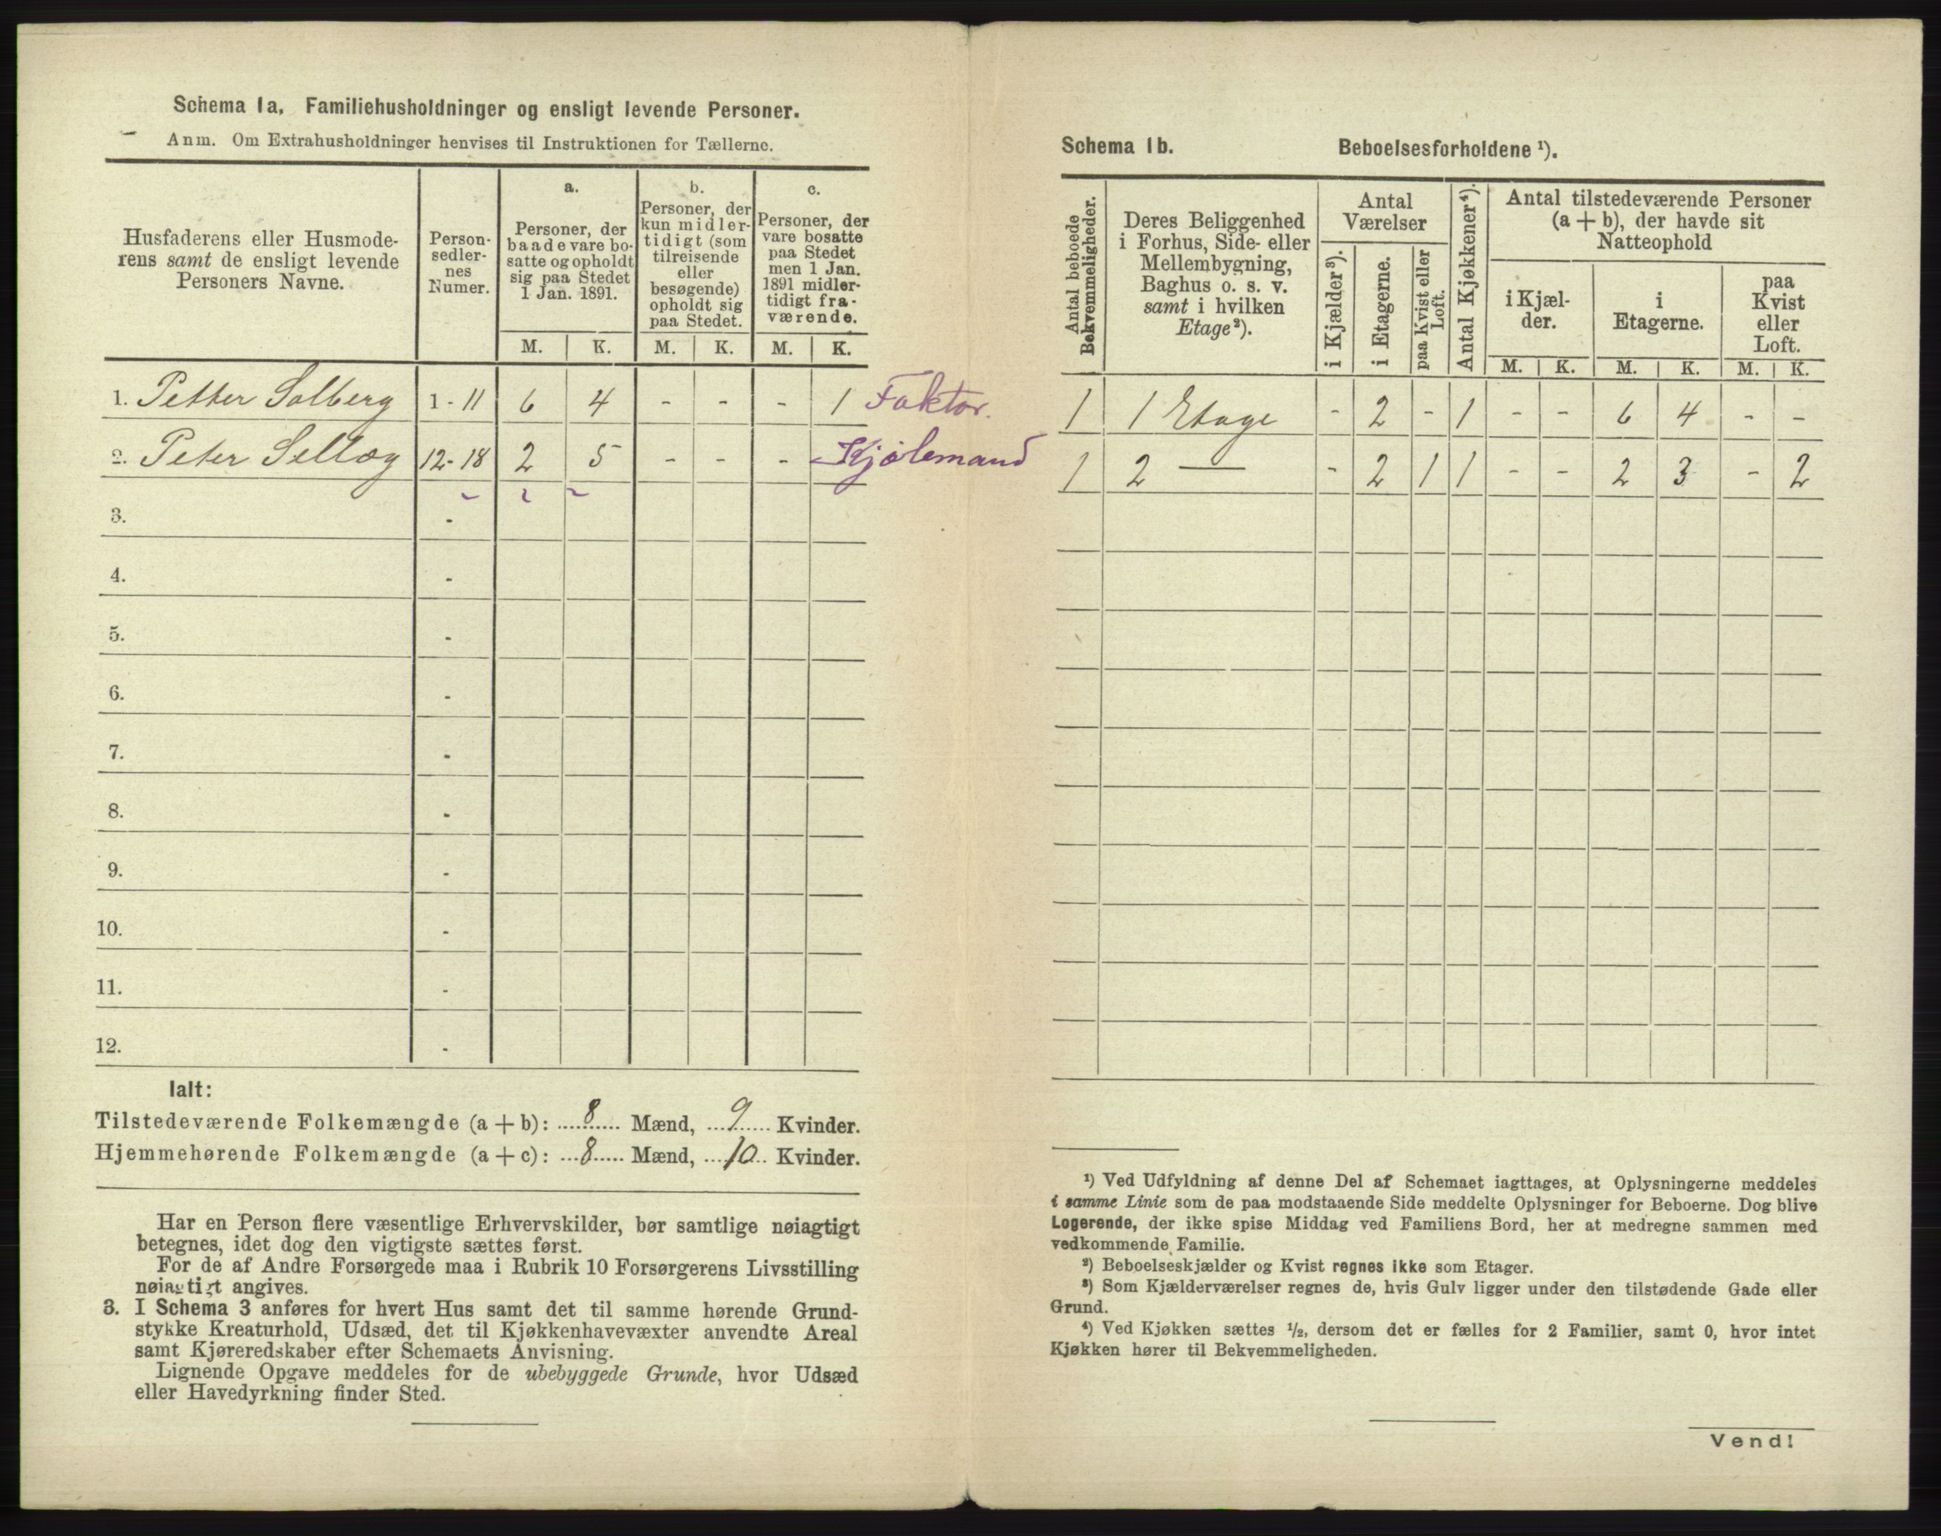 Schema 1a. Familiehusholdninger og ensligt levende Personer.
Anm. Om Extrahusholdninger henvises til Instruktionen for Tællerne.
Husfaderens eller Husmoderens samt de ensligt levende Personers Navne.
Personsedlernes Numer.
a. Personer, der baade vare bosatte og opholdt sig paa Stedet 1 Jan. 1891.
b. Personer, der kun midlertidigt (som tilreisende eller besøgende) opholdt sig paa Stedet.
c. Personer, der vare bosatte paa Stedet men 1 Jan. 1891 midlertidigt fraværende.
M. K. M. K. M. K.
1. Petter Solberg 1-11 6 4 - - - 1 Faktor.
2. Peter Selläg 12-18 2 5 - - - - Kjölemand
3. -
4. -
5. -
6. -
7. -
8. -
9. -
10. -
11. -
12. -
Ialt:
Tilstedeværende Folkemængde (a+b): 8 Mænd, 9 Kvinder.
Hjemmehørende Folkemængde (a+c): 8 Mænd, 10 Kvinder.
Har en Person flere væsentlige Erhvervskilder, bør samtlige nøiagtigt
betegnes, idet dog den vigtigste sættes først.
For de af Andre Forsørgede maa i Rubrik 10 Forsørgerens Livsstilling
nøiagtigt angives.
3. I Schema 3 anføres for hvert Hus samt det til samme hørende Grund-
stykke Kreaturhold, Udsæd, det til Kjøkkenhavevæxter anvendte Areal
samt Kjøreredskaber efter Schemaets Anvisning.
Lignende Opgave meddeles for de ubebyggede Grunde, hvor Udsæd
eller Havedyrkning finder Sted.
Schema 1b. Beboelsesforholdene ¹).
Antal beboede Bekvemmeligheder.
Deres Beliggenhed i Forhus, Side- eller Mellembygning, Baghus o. s. v. samt i hvilken Etage²).
Antal Værelser
i Kjælder³).
i Etagerne.
paa Kvist eller Loft.
Antal Kjøkkener⁴).
Antal tilstedeværende Personer (a+b), der havde sit Natteophold
i Kjælder.
i Etagerne.
paa Kvist eller Loft.
M. K. M. K. M. K.
1 1 Etage - 2 - 1 - - 6 4 - -
1 2 — - 2 1 1 - - 2 3 - 2
¹) Ved Udfyldning af denne Del af Schemaet iagttages, at Oplysningerne meddeles
i samme Linie som de paa modstaaende Side meddelte Oplysninger for Beboerne. Dog blive
Logerende, der ikke spise Middag ved Familiens Bord, her at medregne sammen med
vedkommende Familie.
²) Beboelseskjælder og Kvist regnes ikke som Etager.
³) Som Kjælderværelser regnes de, hvis Gulv ligger under den tilstødende Gade eller
Grund.
⁴) Ved Kjøkken sættes ½, dersom det er fælles for 2 Familier, samt 0, hvor intet
Kjøkken hører til Bekvemmeligheden.
Vend!